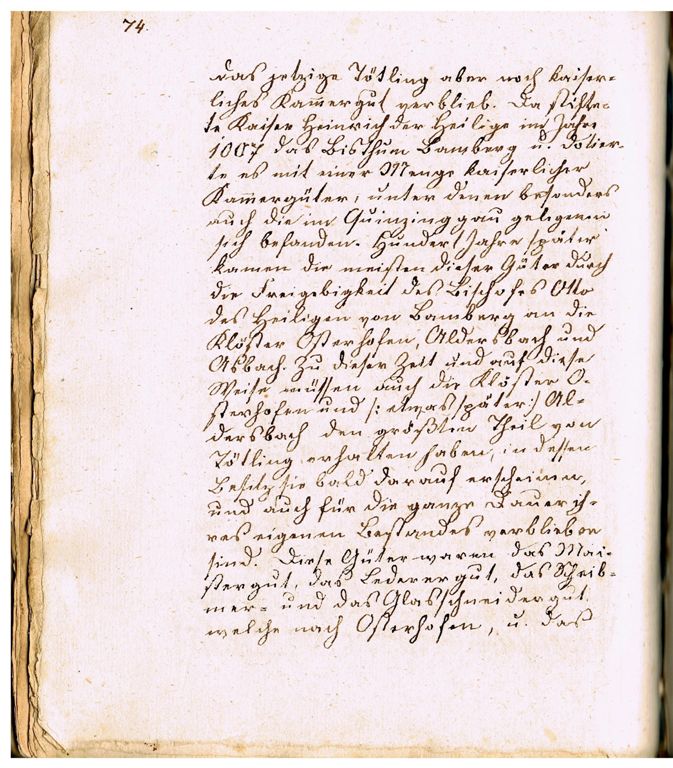 74.
das jetzige Tötling aber noch kaiser-
liches Kam̅ergut verblieb. Da stifte-
te Kaiser Heinrich der Heilige im Jahre
1007 das Bisthum Bamberg u. dotier-
te es mit einer Menge kaiserlicher
Kam̅ergüter, unter denen besonders
auch die im Quinzinggau gelegenen
sich befanden. Hundert Jahre später
kamen die meisten dieser Güter durch
die Freigebigkeit des Bischofes Otto
des Heiligen von Bamberg an die
Klöster Osterhofen, Aldersbach und
Asbach. Zu dieser Zeit und auf diese
Weise müssen auch die Klöster O-
sterhofen und /: etwas später :/ Al-
dersbach den größten Theil von
Tötling erhalten haben, in dessen
Besitz sie bald darauf erscheinen,
und auch für die ganze Dauer ih-
res eigenen Bestandes verblieben
sind. Diese Güter waren das Mai-
stergut, das Lederergut, das Scheib-
mer- und das Glasschneidergut
welche nach Osterhofen, u. das